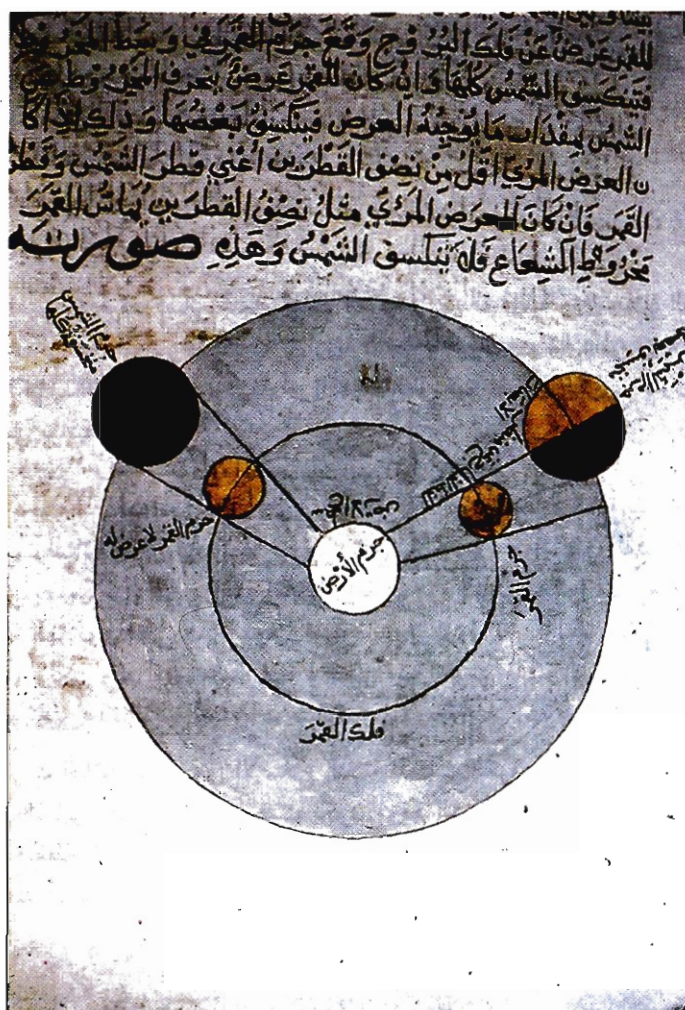 للقمر عرض عن فلك البروج وقع جرم القمر في وسط المخروط
فتنكسف الشمس كلها وان كان للقمر عرض ينحرف المخروط عن
الشمس بمقدار ما يوجبه العرض فينكسف بعضها وذلك اذا كا
ن العرض المرئي اقل من نصف القطرين أعني قطر الشمس وقطر
القمر فان كان العرض المرئي مثل نصف القطرين يماس القمر
مخروط الشعاع فلا ينكسف الشمس وهذه صورته
جرم الشمس
جرم القمر لا عرض له
سطح الارض
جرم الأرض
جرم القمر
فلك القمر